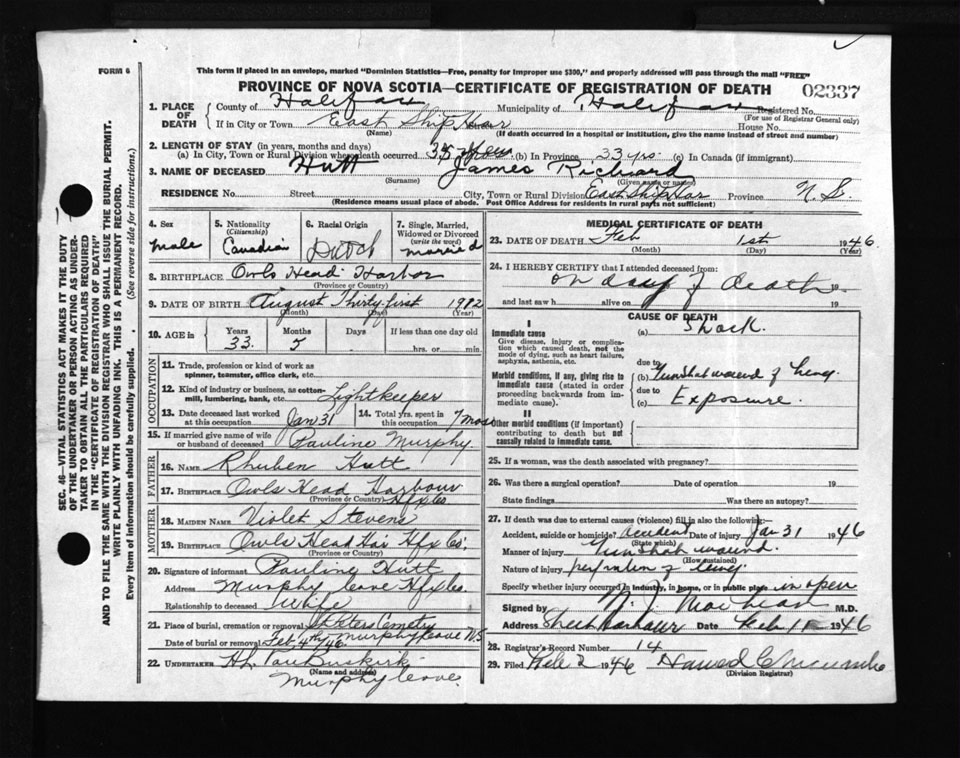 FORM 6
This form if placed in an envelope, marked "Dominion Statistics—Free, penalty for improper use $300," and properly addressed will pass through the mail "FREE"
PROVINCE OF NOVA SCOTIA—CERTIFICATE OF REGISTRATION OF DEATH
02337
1. PLACE OF DEATH
County of Halifax Municipality of Halifax Registered No.
(For use of Registrar General only)
If in City or Town East Ship Har House No.
(Name) (If death occurred in a hospital or institution, give the name instead of street and number)
2. LENGTH OF STAY (in years, months and days)
(a) In City, Town or Rural Division where death occurred (b) In Province 33 yrs. (c) In Canada (if immigrant)
3. NAME OF DECEASED Hutt James Richard
(Surname) (Given name or names)
RESIDENCE No. Street City, Town or Rural Division East Ship Har Province N.S.
(Residence means usual place of abode. Post Office Address for residents in rural parts not sufficient)
SEC. 46—VITAL STATISTICS ACT MAKES IT THE DUTY
OF THE UNDERTAKER OR PERSON ACTING AS UNDER-
TAKER TO OBTAIN ALL THE PARTICULARS REQUIRED
IN THE "CERTIFICATE OF REGISTRATION OF DEATH"
AND TO FILE THE SAME WITH THE DIVISION REGISTRAR WHO SHALL ISSUE THE BURIAL PERMIT.
WRITE PLAINLY WITH UNFADING INK. THIS IS A PERMANENT RECORD.
Every item of information should be carefully supplied. (See reverse side for instructions.)
4. Sex
male
5. Nationality
(Citizenship)
Canadian
6. Racial Origin
Dutch
7. Single, Married, Widowed or Divorced
(write the word)
married
8. BIRTHPLACE Owls Head Harbor
(Province or Country)
9. DATE OF BIRTH August Thirty-first 1912
(Month) (Day) (Year)
10. AGE in Years Months Days If less than one day old
33. 5 hrs. or min.
OCCUPATION
11. Trade, profession or kind of work as
spinner, teamster, office clerk, etc.
12. Kind of industry or business, as cotton-
mill, lumbering, bank, etc. Lightkeeper
13. Date deceased last worked
at this occupation Jan 31
14. Total yrs. spent in
this occupation 7 mos
15. If married give name of wife
or husband of deceased Pauline Murphy.
FATHER
16. NAME Rhuben Hutt
17. BIRTHPLACE Owls Head Harbour
(Province or Country) Hfx Co
MOTHER
18. MAIDEN NAME Violet Stevens
19. BIRTHPLACE Owls Head Har Hfx Co.
(Province or Country)
20. Signature of informant Pauline Hutt
Address Murphy Cove Hfx Co.
Relationship to deceased Wife
21. Place of burial, cremation or removal St Peters Cemetry
Date of burial or removal Feb 4th 46. Murphy Cove N.S
22. UNDERTAKER
(Name and address)
Murphy Cove.
MEDICAL CERTIFICATE OF DEATH
23. DATE OF DEATH Feb 1st 1946.
(Month) (Day) (Year)
24. I HEREBY CERTIFY that I attended deceased from:
on day of death 19
and last saw h alive on 19
CAUSE OF DEATH
I
Immediate cause (a) Shock.
Give disease, injury or complication which caused death, not the mode of dying, such as heart failure, asphyxia, asthenia, etc.
due to
Morbid conditions, if any, giving rise to immediate cause (stated in order proceeding backwards from immediate cause).
(b) Gunshot wound of
due to
(c) Exposure.
II
Other morbid conditions (if important) contributing to death but not causally related to immediate cause.
25. If a woman, was the death associated with pregnancy?
26. Was there a surgical operation? Date of operation 19
State findings Was there an autopsy?
27. If death was due to external causes (violence) fill in also the following:
Accident, suicide or homicide? accident Date of injury Jan 31 1946
(State which)
Manner of injury Gunshot wound.
(How sustained)
Nature of injury
Specify whether injury occurred in industry, in home, or in public place in open
Signed by M.D.
Address Sheet Harbour Date Feb 1 1946
28. Registrar's Record Number 14
29. Filed Feb 2 1946
(Division Registrar)